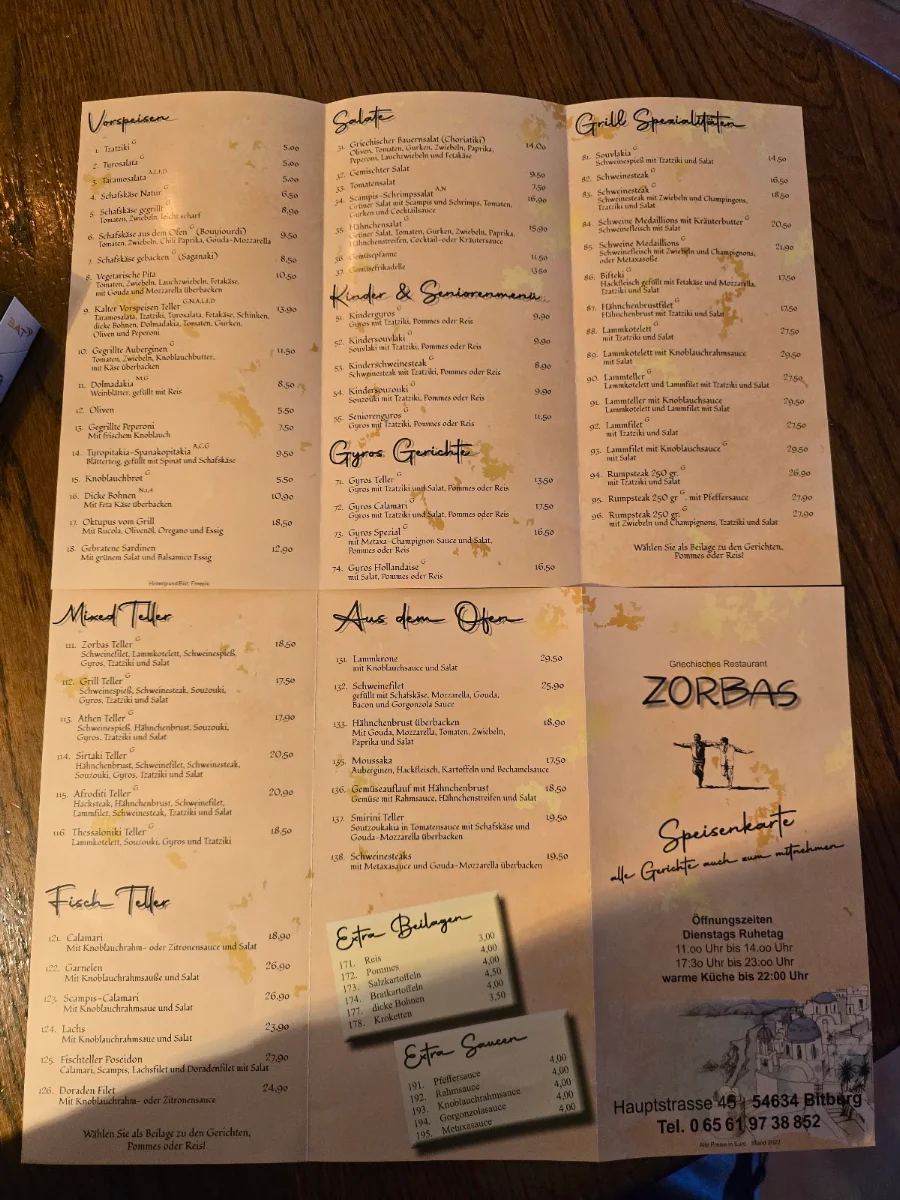 Vorspeisen
1. Tzatziki G 5,00
2. Tyrosalata G 5,00
3. Taramosalata A,1,F,D 5,00
4. Schafskäse Natur G 6,50
5. Schafskäse gegrillt G 8,90
Tomaten, Zwiebeln, leicht scharf
6. Schafskäse aus dem Ofen G (Bouyiourdi) 9,50
Tomaten, Zwiebeln, Chili Paprika, Gouda-Mozzarella
7. Schafskäse gebacken G (Saganaki) 8,50
8. Vegetarische Pita 10,50
Tomaten, Zwiebeln, Lauchzwiebeln, Fetakäse,
mit Gouda und Mozzarella überbacken
9. Kalter Vorspeisen Teller G,N,A,1,F,D 13,90
Taramosalata, Tzatziki, Tyrosalata, Fetakäse, Schinken,
dicke Bohnen, Dolmadakia, Tomaten, Gurken,
Oliven und Peperoni
10. Gegrillte Auberginen G 11,50
Tomaten, Zwiebeln, Knoblauchbutter,
mit Käse überbacken
11. Dolmadakia M,G 8,50
Weinblätter, gefüllt mit Reis
12. Oliven 5,50
13. Gegrillte Peperoni 7,50
Mit frischem Knoblauch
14. Turopitakia-Spanakopitakia A,C,G 9,50
Blätterteig, gefüllt mit Spinat und Schafskäse
15. Knoblauchbrot G 5,50
16. Dicke Bohnen N,1,4 10,90
Mit Feta Käse überbacken
17. Oktupus vom Grill 18,50
Mit Rucola, Olivenöl, Oregano und Essig
18. Gebratene Sardinen 12,90
Mit grünem Salat und Balsamico Essig
Hintergrundbild: Freepix
Salate
31. Griechischer Bauernsalat (Choriatiki) 14,00
Oliven, Tomaten, Gurken, Zwiebeln, Paprika,
Peperoni, Lauchzwiebeln und Fetakäse
32. Gemischter Salat 9,50
33. Tomatensalat 7,50
34. Scampis-Schrimpssalat A,N 16,90
Grüner Salat mit Scampis und Schrimps, Tomaten,
Gurken und Cocktailsauce
35. Hähnchensalat G 15,90
Grüner Salat, Tomaten, Gurken, Zwiebeln, Paprika,
Hähnchenstreifen, Cocktail-oder Kräutersauce
36. Gemüsepfanne 11,50
37. Gemüsefrikadelle 13,50
Kinder & Seniorenmenu
51. Kindergyros G 9,90
Gyros mit Tzatziki, Pommes oder Reis
52. Kindersouvlaki G 9,90
Souvlaki mit Tzatziki, Pommes oder Reis
53. Kinderschweinesteak G 8,90
Schweinesteak mit Tzatziki, Pommes oder Reis
54. Kindersouzouki G 9,90
Souzouki mit Tzatziki, Pommes oder Reis
55. Seniorengyros G 11,50
Gyros mit Tzatziki, Pommes oder Reis
Gyros Gerichte
71. Gyros Teller G 13,50
Gyros mit Tzatziki und Salat, Pommes oder Reis
72. Gyros Calamari G 17,50
Gyros mit Tzatziki und Salat, Pommes oder Reis
73. Gyros Spezial G 16,50
mit Metaxa-Champignon Sauce und Salat,
Pommes oder Reis
74. Gyros Hollandaise G 16,50
mit Salat, Pommes oder Reis
Grill Spezialitäten
81. Souvlakia G 14,50
Schweinespieß mit Tzatziki und Salat
82. Schweinesteak G 16,50
83. Schweinesteak G 18,50
Schweinesteak mit Zwiebeln und Champingons,
Tzatziki und Salat
84. Schweine Medaillions mit Kräuterbutter G 20,50
Schweinefleisch mit Salat
85. Schweine Medaillions G 21,90
Schweinefleisch mit Zwiebeln und Champignons,
oder Metaxasoße
86. Bifteki G 17,50
Hackfleisch gefüllt mit Fetakäse und Mozzarella,
Tzatziki und Salat
87. Hähnchenbrustfilet G 17,50
Hähnchenbrust mit Tzatziki und Salat
88. Lammkotelett G 27,50
mit Tzatziki und Salat
89. Lammkotelett mit Knoblauchrahmsauce G 29,50
mit Salat
90. Lammteller G 27,50
Lammkotelett und Lammfilet mit Tzatziki und Salat
91. Lammteller mit Knoblauchsauce G 29,50
Lammkotelett und Lammfilet mit Salat
92. Lammfilet G 27,50
mit Tzatziki und Salat
93. Lammfilet mit Knoblauchsauce G 29,50
mit Salat
94. Rumpsteak 250 gr. G 26,90
mit Tzatziki und Salat
95. Rumpsteak 250 gr G. mit Pfeffersauce 27,90
96. Rumpsteak 250 gr. G 27,90
mit Zwiebeln und Champignons, Tzatziki und Salat
Wählen Sie als Beilage zu den Gerichten,
Pommes oder Reis!
Mixed Teller
111. Zorbas Teller G 18,50
Schweinefilet, Lammkotelett, Schweinespieß,
Gyros, Tzatziki und Salat
112. Grill Teller G 17,50
Schweinespieß, Schweinesteak, Souzouki,
Gyros, Tzatziki und Salat
113. Athen Teller G 17,90
Schweinespieß, Hähnchenbrust, Souzouki,
Gyros, Tzatziki und Salat
114. Sirtaki Teller G 20,50
Hähnchenbrust, Schweinefilet, Schweinesteak,
Souzouki, Gyros, Tzatziki und Salat
115. Afroditi Teller G 20,90
Hacksteak, Hähnchenbrust, Schweinefilet,
Lammfilet, Schweinesteak, Tzatziki und Salat
116. Thessaloniki Teller G 18,50
Lammkotelett, Souzouki, Gyros und Tzatziki
Fisch Teller
121. Calamari 18,90
Mit Knoblauchrahm- oder Zitronensauce und Salat
122. Garnelen 26,90
Mit Knoblauchrahmsauße und Salat
123. Scampis-Calamari 26,90
Mit Knoblauchrahmsaue und Salat
124. Lachs 23,90
Mit Knoblauchrahmsaue und Salat
125. Fischteller Poseidon 27,90
Calamari, Scampis, Lachsfilet und Doradenfilet mit Salat
126. Doraden Filet 24,90
Mit Knoblauchrahm- oder Zitronensauce
Wählen Sie als Beilage zu den Gerichten,
Pommes oder Reis!
Aus dem Ofen
131. Lammkrone 29,50
mit Knoblauchsauce und Salat
132. Schweinefilet 25,90
gefüllt mit Schafskäse, Mozzarella, Gouda,
Bacon und Gorgonzola Sauce
133. Hähnchenbrust überbacken 18,90
Mit Gouda, Mozzarella, Tomaten, Zwiebeln,
Paprika und Salat
135. Moussaka 17,50
Auberginen, Hackfleisch, Kartoffeln und Bechamelsauce
136. Gemüseauflauf mit Hähnchenbrust 18,50
Gemüse mit Rahmsauce, Hähnchenstreifen und Salat
137. Smirini Teller 19,50
Soutzoukakia in Tomatensauce mit Schafskäse und
Gouda-Mozzarella überbacken
138. Schweinesteaks 19,50
mit Metaxasauce und Gouda-Mozzarella überbacken
Extra Beilagen
171. Reis 3,00
172. Pommes 4,00
173. Salzkartoffeln 4,00
174. Bratkartoffeln 4,50
177. dicke Bohnen 4,00
178. Kroketten 3,50
Extra Saucen
191. Pfeffersauce 4,00
192. Rahmsauce 4,00
193. Knoblauchrahmsauce 4,00
194. Gorgonzolasauce 4,00
195. Metaxasauce 4,00
Griechisches Restaurant
ZORBAS
Speisenkarte
alle Gerichte auch zum mitnehmen
Öffnungszeiten
Dienstags Ruhetag
11.oo Uhr bis 14.oo Uhr
17:3o Uhr bis 23:oo Uhr
warme Küche bis 22:00 Uhr
Hauptstrasse 45 54634 Bitburg
Tel. 0 65 61 97 38 852
Alle Preise in Euro Stand 2022